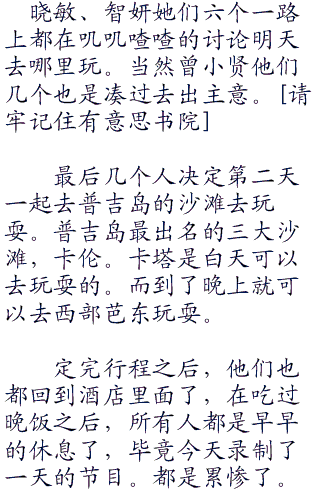 晓敏、智妍她们六个一路
上都在叽叽喳喳的讨论明天
去哪里玩。当然曾小贤他们
几个也是凑过去出主意。[请
牢记住有意思书院]
最后几个人决定第二天
一起去普吉岛的沙滩去玩
耍。普吉岛最出名的三大沙
滩，卡伦。卡塔是白天可以
去玩耍的。而到了晚上就可
以去西部芭东玩耍。
定完行程之后，他们也
都回到酒店里面了，在吃过
晚饭之后，所有人都是早早
的休息了，毕竟今天录制了
一天的节目。都是累惨了。